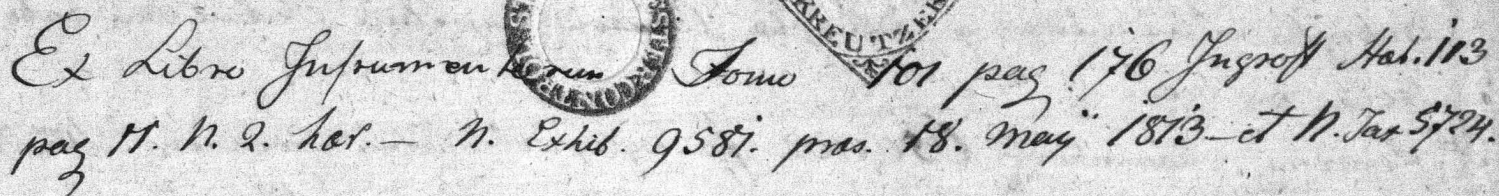 KREUTZER
Ex Libro Instrumentorum Tomo 101 pag 176 Ingross Hæl. 113
pag 11. N. 2. hær. — N. Exhib. 9581. præs. 18. Maÿ 1813 — et N. Tax 5724.